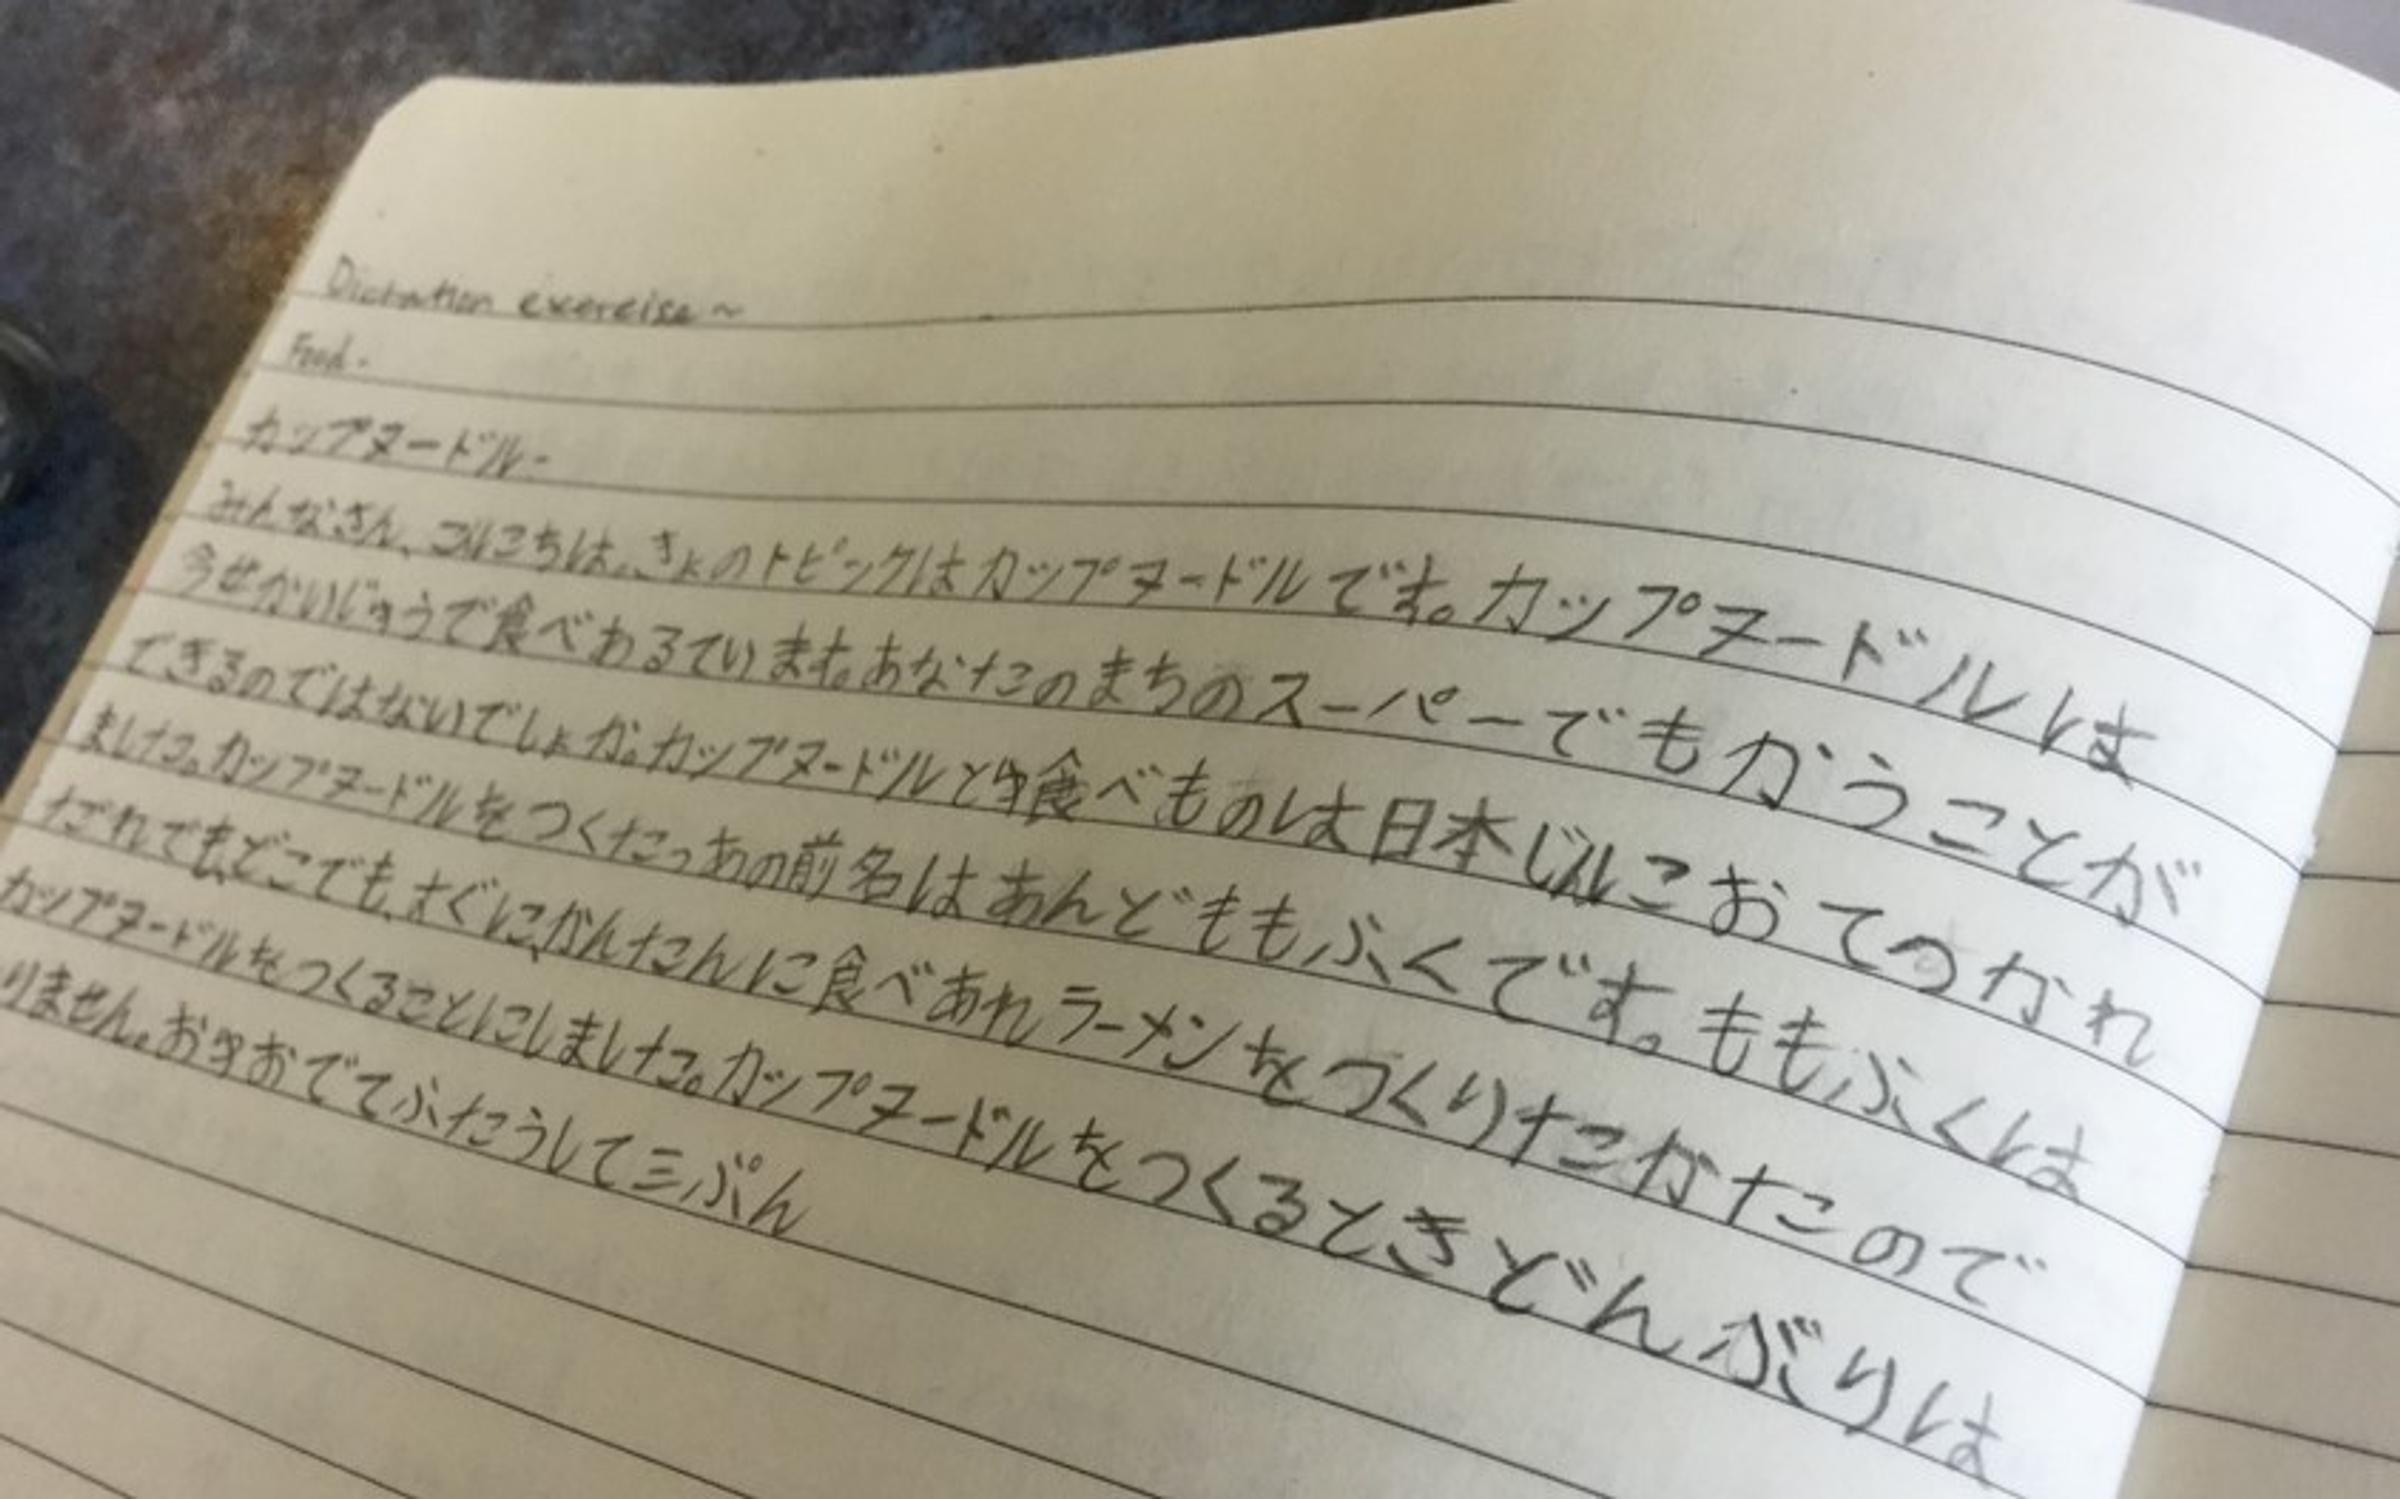 Dictation exercise ~
Food -
カップヌードル -
みんなさん、こんにちは。きょのトピックはカップヌードルです。カップヌードルは
今せかいじゅうで食べわるています。あなたのまちのスーパーでもかうことが
できるのではないでしょか。カップヌードルとゆ食べものは日本じんにおてつかれ
ました。カップヌードルをつくたっあの前名はあんどももふくです。ももふくは
だれでも、どこでも、すぐに、かんたんに食べあれラーメンをつくりたかたので
カップヌードルをつくることにしました。カップヌードルをつくるときどんぶりは
りません。おゆおでてふたうして三ぷん